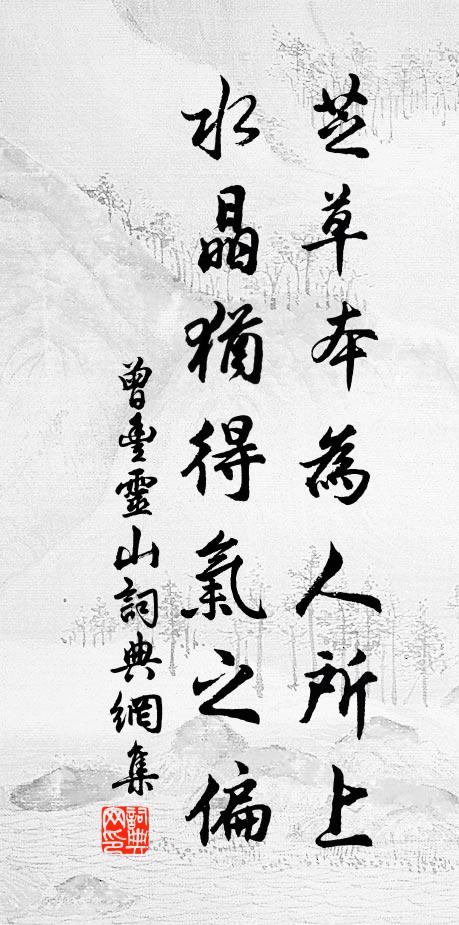 芝草本為人所上
水晶猶得氣之偏
曾豐靈山詞典網集
詞典網印